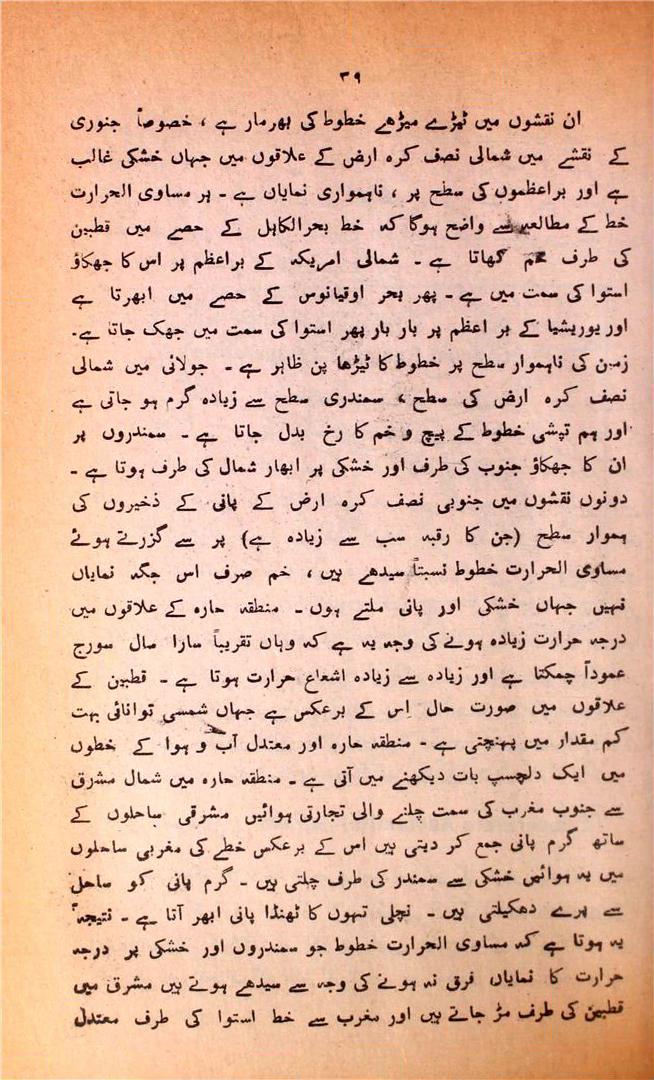 ۳۹
ان نقشوں میں ٹیڑے میڑھے خطوط کی بھرمار ہے ، خصوصاً جنوری
کے نقشے میں شمالی نصف کرہ ارض کے علاقوں میں جہاں خشکی غالب
ہے اور براعظموں کی سطح پر ، ناہمواری نمایاں ہے ۔ ہر مساوی الحرارت
خط کے مطالعہ سے واضح ہوگا کہ خط بحرالکاہل کے حصے میں قطبین
کی طرف خم کھاتا ہے ۔ شمالی امریکہ کے براعظم پر اس کا جھکاؤ
استوا کی سمت میں ہے ۔ پھر بحر اوقیانوس کے حصے میں ابھرتا ہے
اور یوریشیا کے بر اعظم پر بار بار پھر استوا کی سمت میں جھک جاتا ہے۔
زمین کی ناہموار سطح پر خطوط کا ٹیڑھا پن ظاہر ہے ۔ جولائی میں شمالی
نصف کرہ ارض کی سطح ، سمندری سطح سے زیادہ گرم ہو جاتی ہے
اور ہم تپشی خطوط کے پیچ و خم کا رخ بدل جاتا ہے ۔ سمندروں پر
ان کا جھکاؤ جنوب کی طرف اور خشکی پر ابھار شمال کی طرف ہوتا ہے ۔
دونوں نقشوں میں جنوبی نصف کرہ ارض کے پانی کے ذخیروں کی
ہموار سطح (جن کا رقبہ سب سے زیادہ ہے) پر سے گزرتے ہوئے
مساوی الحرارت خطوط نسبتاً سیدھے ہیں ، خم صرف اس جگہ نمایاں
نہیں جہاں خشکی اور پانی ملتے ہوں ۔ منطقہ حارہ کے علاقوں میں
درجہ حرارت زیادہ ہونے کی وجہ یہ ہے کہ وہاں تقریباً سارا سال سورج
عموداً چمکتا ہے اور زیادہ سے زیادہ اشعاع حرارت ہوتا ہے ۔ قطبین کے
علاقوں میں صورت حال اِس کے برعکس ہے جہاں شمسی توانائی بہت
کم مقدار میں پہنچتی ہے ۔ منطقہ حارہ اور معتدل آب و ہوا کے خطوں
میں ایک دلچسپ بات دیکھنے میں آتی ہے ۔ منطقہ حارہ میں شمال مشرق
سے جنوب مغرب کی سمت چلنے والی تجارتی ہوائیں مشرقی ساحلوں کے
ساتھ گرم پانی جمع کر دیتی ہیں اس کے برعکس خطے کی مغربی ساحلوں
میں یہ ہوائیں خشکی سے سمندر کی طرف چلتی ہیں ۔ گرم پانی کو ساحل
سے پرے دھکیلتی ہیں ۔ نچلی تہوں کا ٹھنڈا پانی ابھر آتا ہے ۔ نتیجہ ً
یہ ہوتا ہے کہ مساوی الحرارت خطوط جو سمندروں اور خشکی پر درجہ
حرارت کا نمایاں فرق نہ ہونے کی وجہ سے سیدھے ہوتے ہیں مشرق میں
قطبین کی طرف مڑ جاتے ہیں اور مغرب سے خط استوا کی طرف معتدل